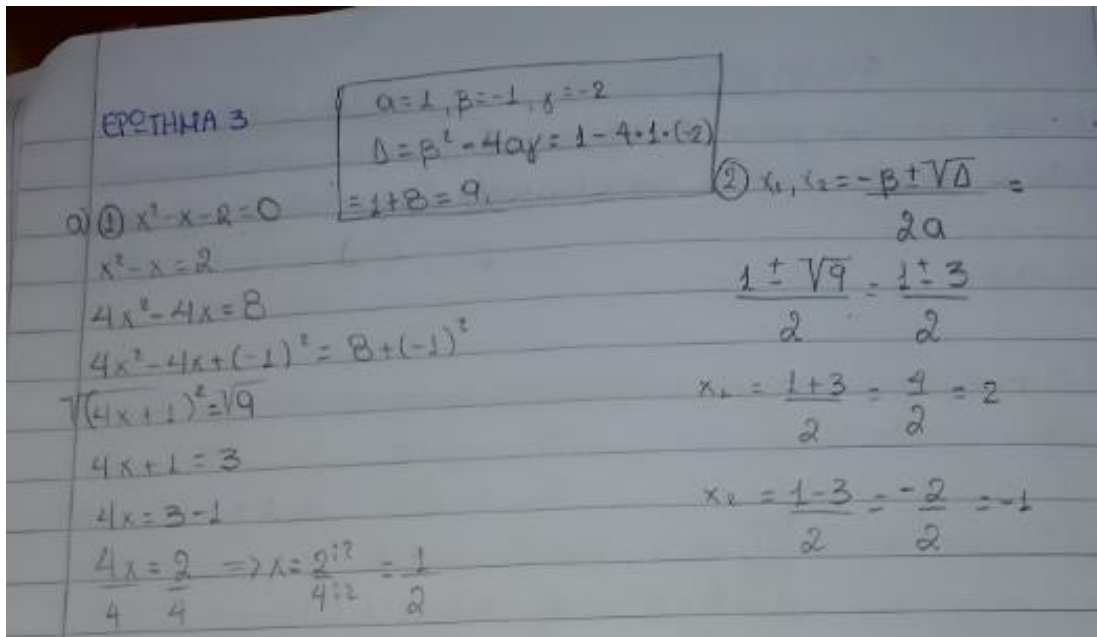 ΕΡΩΤΗΜΑ 3
α=1, β=-1, γ=-2
Δ=β²-4αγ=1-4·1·(-2)
=1+8=9.
α) ① x²-x-2=0
x²-x=2
4x²-4x=8
4x²-4x+(-1)²=8+(-1)²
√(4x+1)²=√9
4x+1=3
4x=3-1
4x/4=2/4 => x=2:2/4:2=1/2
② x₁,x₂=-β±√Δ/2α=
1±√9/2=1±3/2
x₁=1+3/2=4/2=2
x₂=1-3/2=-2/2=-1